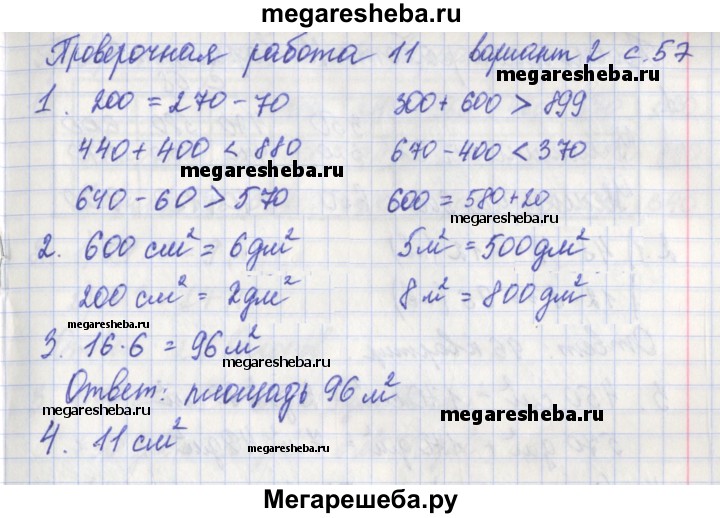 megaresheba.ru
Проверочная работа 11 вариант 2 с. 57
megaresheba.ru
1. 200 = 270 - 70 300 + 600 > 899
440 + 400 < 880 670 - 400 < 370
megaresheba.ru
640 - 60 > 570 600 = 580 + 20
megaresheba.ru
2. 600 см² = 6 дм² 5 м² = 500 дм²
200 см² = 2 дм² 8 м² = 800 дм²
megaresheba.ru
3. 16 · 6 = 96 м²
Ответ: площадь 96 м²
megaresheba.ru megaresheba.ru
4. 11 см²
megaresheba.ru
Мегарешеба.ру